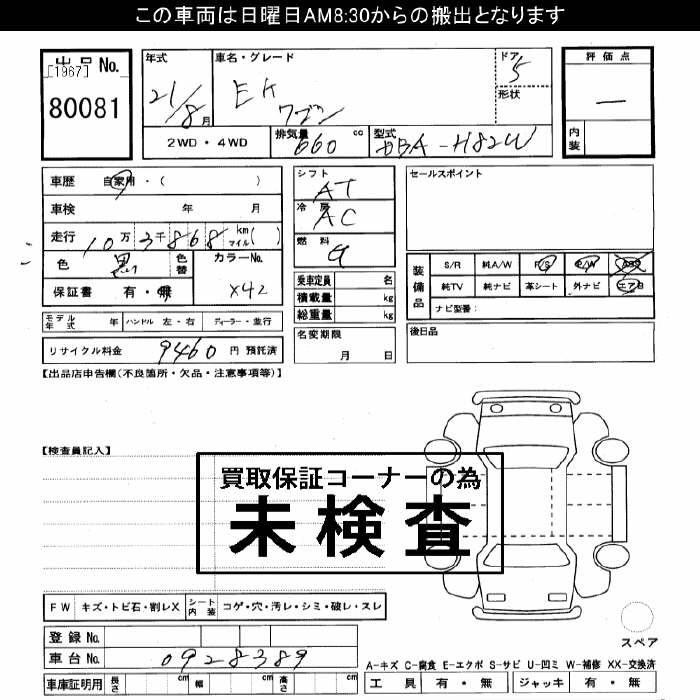 この車両は日曜日AM8:30からの搬出となります
出品No.
[1967]
80081
年式
21/8月
車名・グレード
EK
ワゴン
ドア
5
形状
評価点
—
内装
2WD・4WD
排気量 660 cc
型式 DBA-H82W
車歴 自家用・( )
車検 年 月
走行 10万3千868 km マイル( )
色 黒 色替 カラーNo.
X42
保証書 有・無
モデル年式 年 ハンドル 左・右 ディーラー・並行
リサイクル料金 9460 円 預託済
シフト
AT
冷房
AC
燃料
G
乗車定員 名
積載量 kg
総重量 kg
名変期限
月 日
セールスポイント
装備品
S/R 純A/W P/S P/W ABS
純TV 純ナビ 革シート 外ナビ エアB
ナビ型番:
後日品
【出品店申告欄(不良箇所・欠品・注意事項等)】
【検査員記入】
買取保証コーナーの為
未検査
FW キズ・トビ石・割レX シート内装 コゲ・穴・汚レ・シミ・破レ・スレ
登録No.
車台No. 0928389
車庫証明用 長さ cm 幅 cm 高さ cm
スペア
A-キズ C-腐食 E-エクボ S-サビ U-凹ミ W-補修 XX-交換済
工具 有・無 ジャッキ 有・無